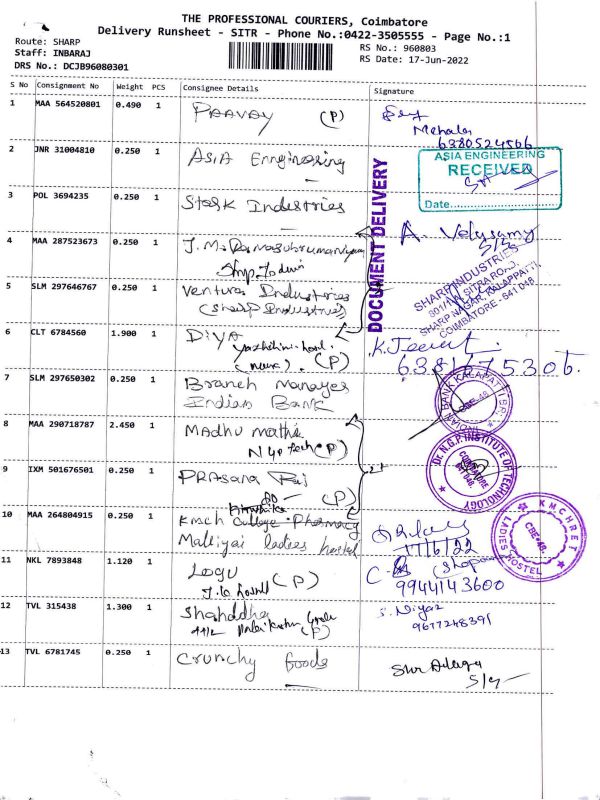 THE PROFESSIONAL COURIERS, Coimbatore
Delivery Runsheet - SITR - Phone No.:0422-3505555 - Page No.:1
Route: SHARP
Staff: INBARAJ
DRS No.: DCJB96080301
RS No.: 960803
RS Date: 17-Jun-2022
S No Consignment No Weight PCS Consignee Details Signature
1 MAA 564520801 0.490 1 PAAVAY (P)
Mehala
6380524566
2 JNR 31004810 0.250 1 ASIA Enngineering
ASIA ENGINEERING
RECEIVED
Date
3 POL 3694235 0.250 1 Stork Industries
DOCUMENT DELIVERY
4 MAA 287523673 0.250 1
A. Velusamy
5 SLM 297646767 0.250 1 Ventura Industries
(Sharp Industries)
SHARP INDUSTRIES
SHARP NAGAR, KALAPPATTI,
COIMBATORE - 641 048
6 CLT 6784560 1.900 1 DIYA
(P)
7 SLM 297650302 0.250 1 Branch Manager
Indian Bank
8 MAA 290718787 2.450 1 Madhu Mathi
(P)
Dr. N.G.P. INSTITUTE OF TECHNOLOGY
COIMBATORE
641 048
9 IXM 501676501 0.250 1 PRASANA
(P)
10 MAA 264804915 0.250 1 KMCH College Pharmacy
Malligai ladies hostel
17/6/22
KMCHRET
CBE-48.
LADIES HOSTEL
11 NKL 7893848 1.120 1 LOGU (P)
9944143600
12 TVL 315438 1.300 1 Shahddha
(P)
S. Niyaz
9677248391
13 TVL 6781745 0.250 1 Crunchy foods